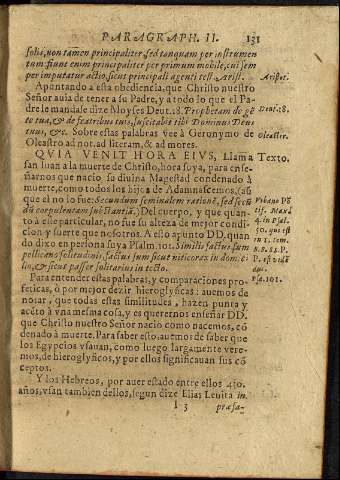 PARAGRAPH. II. 131
solis, non tamen principaliter, sed tanquam per instrumen
tum: fiunt enim principaliter per primum mobile, cui sem
per imputatur actio, sicut principali agenti test. Arist. Aristot.
Apuntando a esta obediencia, que Christo nuestro
Señor auia de tener a su Padre, y a todo lo que el Pa
dre le mandasse dize Moyses Deut. 18. Prophetam de gē Deut. 18.
te tua, & de fratribus tuis, suscitabit tibi Dominus Deus
tuus, &c. Sobre estas palabras vee à Geronymo de Oleaster.
Oleastro ad not. ad literam, & ad mores.
QVIA VENIT HORA EIVS, Llama Texto.
san Iuan a la muerte de Christo, hora suya, para ense-
ñarnos que nacio su diuina Magestad condenado à
muerte, como todos los hijos de Adam nascemos, (aū
que el no lo fue: Secundum seminalem rationē, sed secū
dū corpulentam substantiā.) Del cuerpo, y que quan-
to à else particular, no fue su alteza de mejor condi-
cion y suerte que nosotros. A ello apuntò DD. quan
do dixo en persona suya Psalm. 101. Similis factus sum
pellicano solitudinis, factus sum sicut niticorax in domi-
cilio, & sicut passer solitarius in tecto.
Vrbano Pō
tif. Maxi.
4. in Psal.
50. que est
in 1. tom.
B. B. SS. P.
P. est vidē
dus.
Psa. 101.
Para entender estas palabras, y comparaciones pro-
feticas, ò por mejor dezir hieroglyficas: auemos de
notar, que todas estas similitudes, hazen punta y
aceto à vna mesma cosa, y es querernos enseñar DD.
que Christo nuestro Señor nacio como nacemos, cō
denado à muerte. Para saber esto: auemos de saber que
los Egypcios vsauan, como luego largamente vere-
mos, de hieroglyficos, y por ellos significauan sus cō
ceptos.
Y los Hebreos, por auer estado entre ellos 430.
años, vsan tambien dellos, segun dize Elias Leuita in
I 3 præfa-